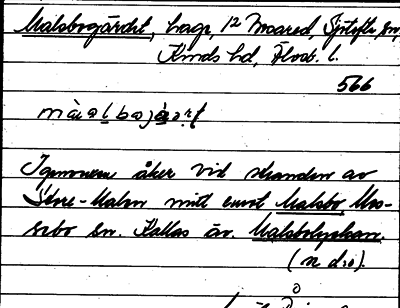 Malsbogärdet, hage, 12 Moared, Sjötofta sn,
Kinds hd, Älvsb. l.
566
Igenvuxen åker vid stranden av
Store-Malen mitt emot Malsbo, Mos-
sebo sn. Kallas äv. Malsbolyckan.
(n d:o).